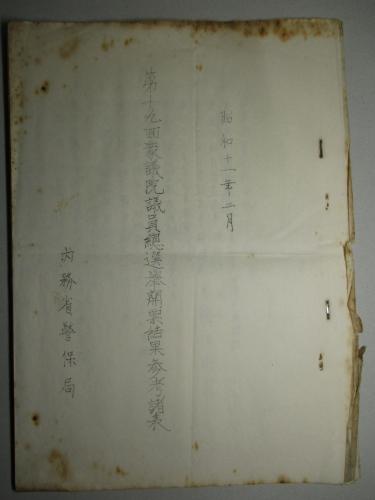 昭和十一年二月
第十九回衆議院議員總選擧開票結果參考諸表
内務省警保局